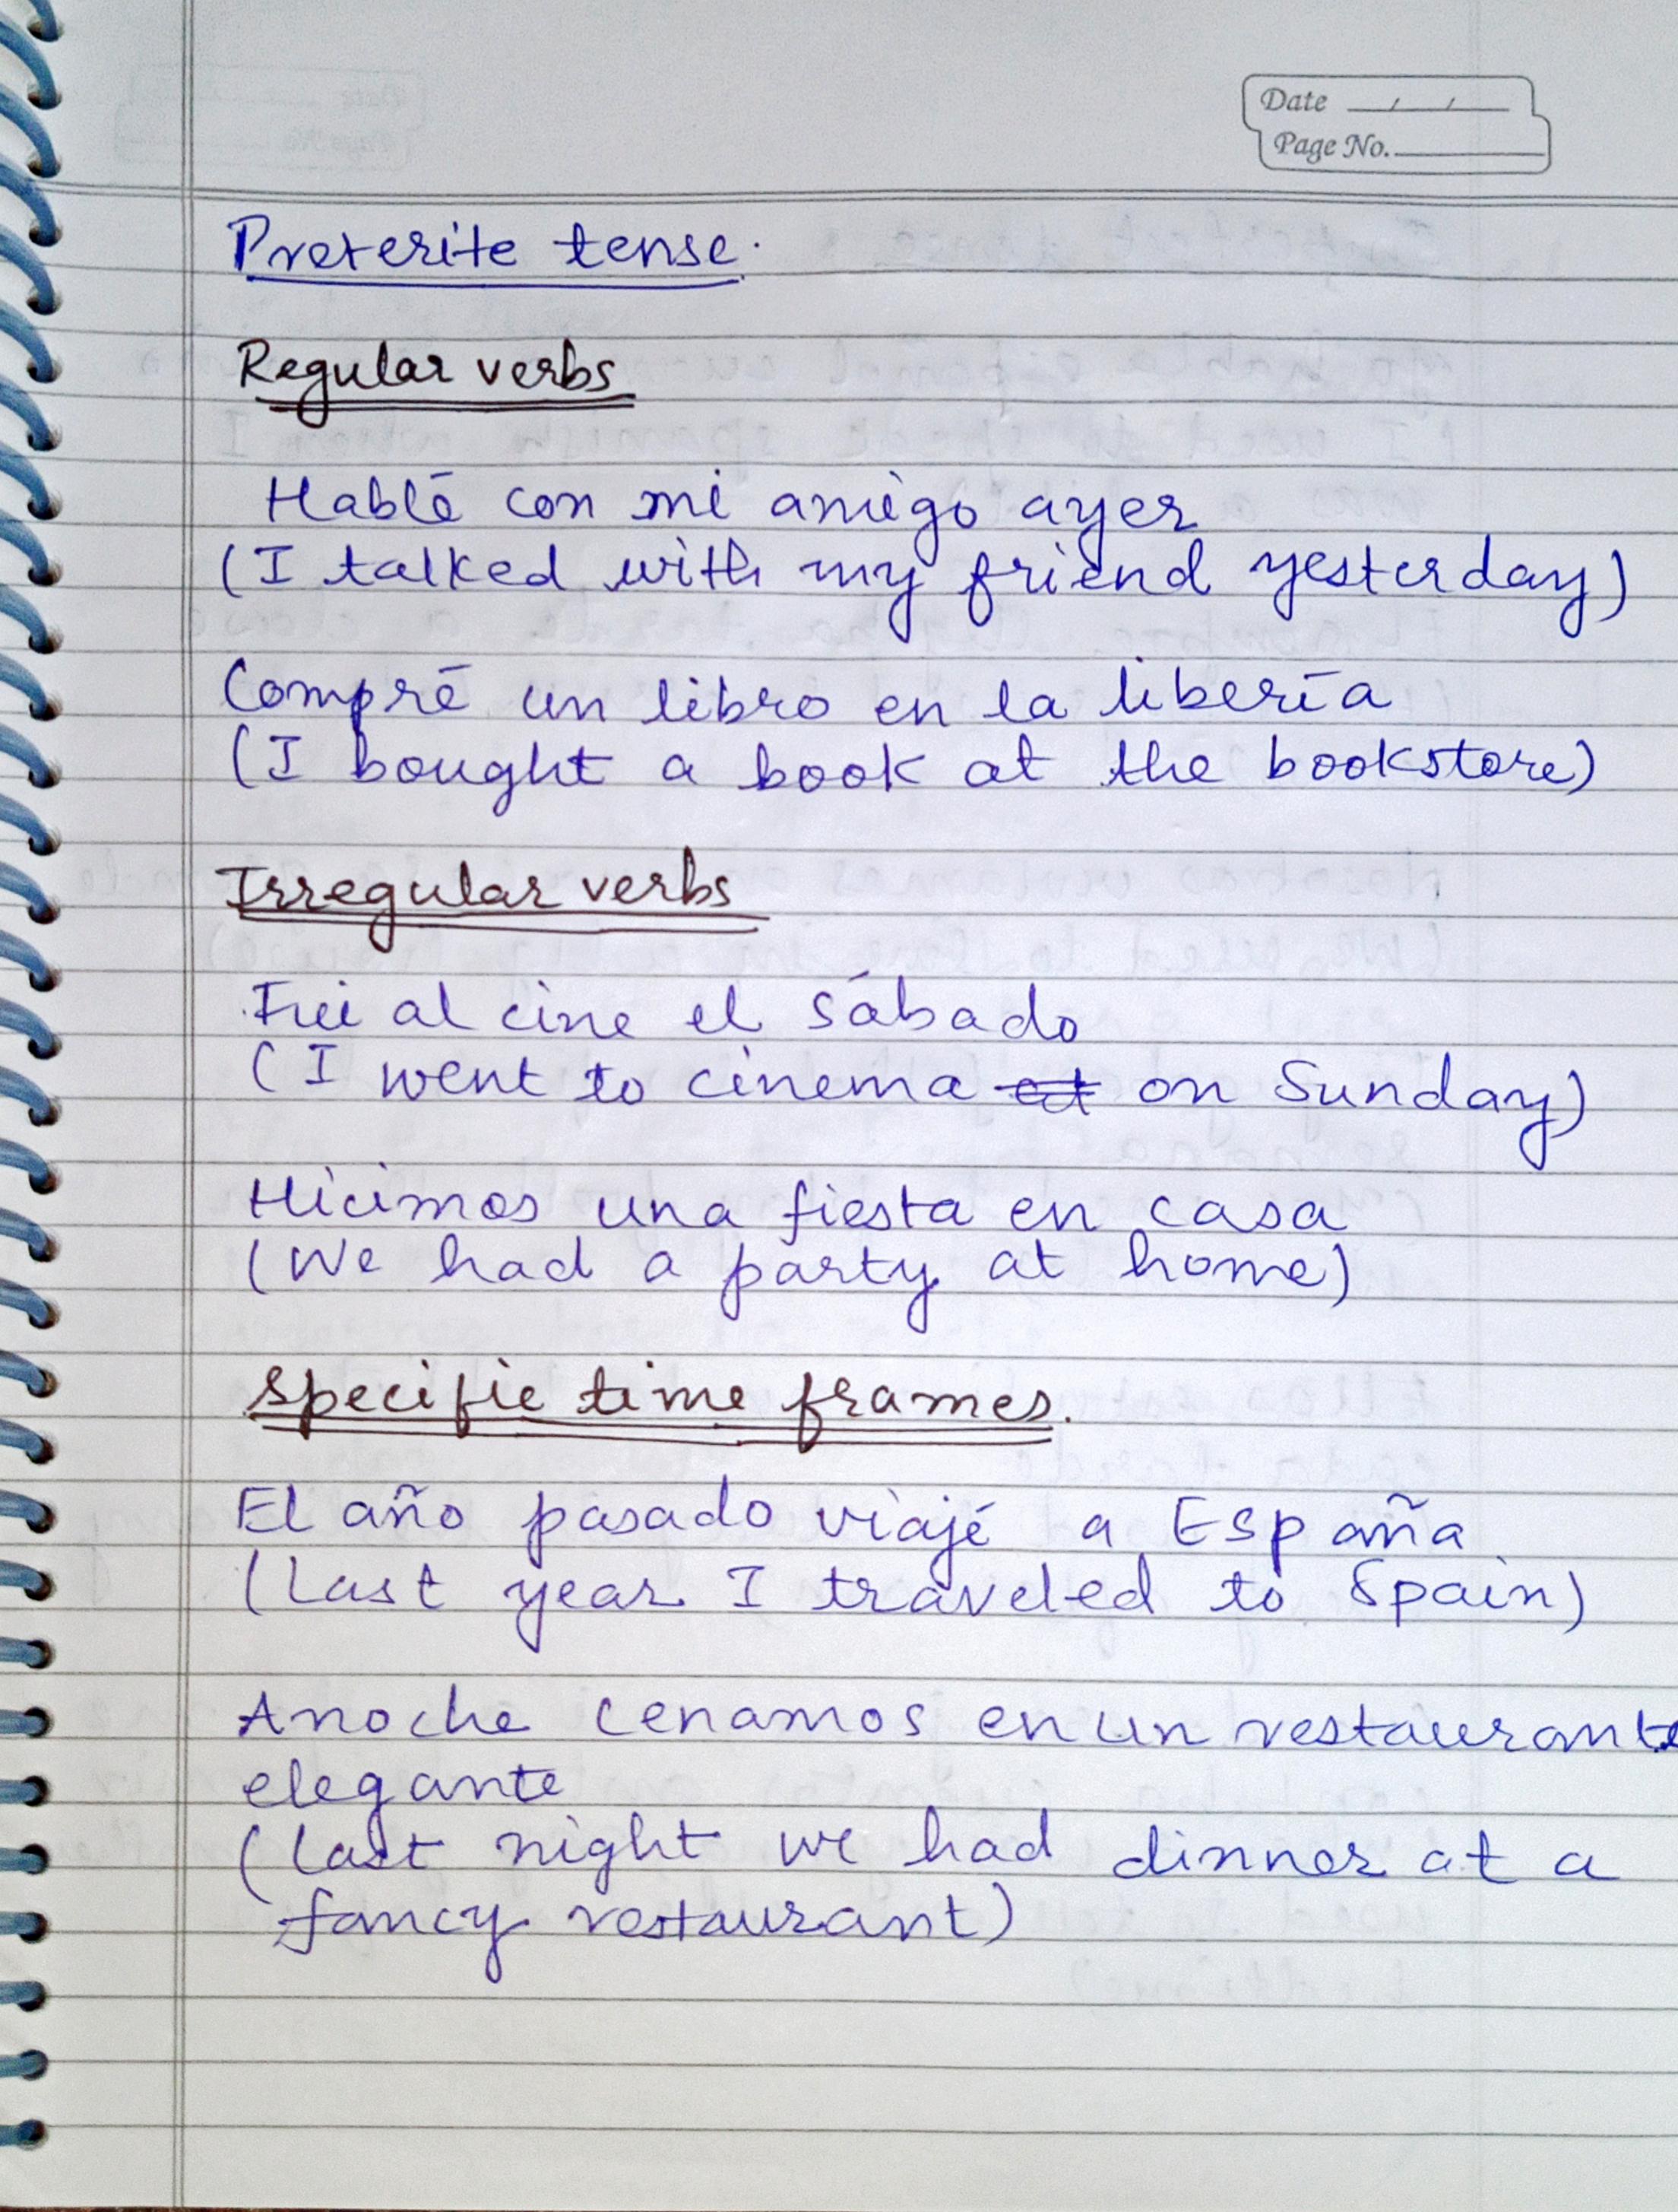 Date __/__/__
Page No.______
Preterite tense.
Regular verbs
Hablé con mi amigo ayer
(I talked with my friend yesterday)
Compré un libro en la libería
(I bought a book at the bookstore)
Irregular verbs
Fui al cine el sábado
(I went to cinema at on Sunday)
Hicimos una fiesta en casa
(We had a party at home)
Specific time frames.
El año pasado viajé a España
(Last year I traveled to Spain)
Anoche cenamos en un restaurante
elegante
(last night we had dinner at a
fancy restaurant)